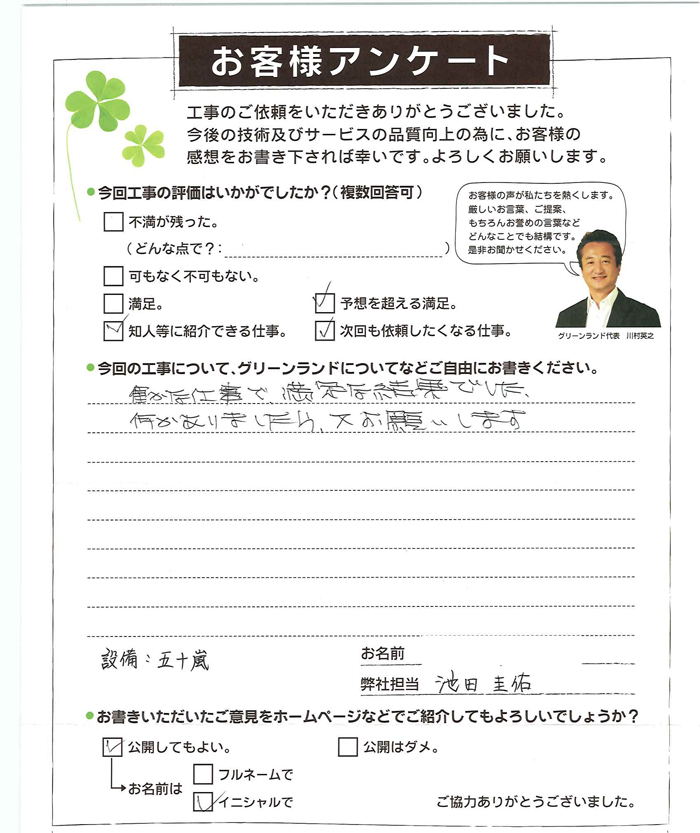 お客様アンケート
工事のご依頼をいただきありがとうございました。
今後の技術及びサービスの品質向上の為に、お客様の
感想をお書き下されば幸いです。よろしくお願いします。
今回工事の評価はいかがでしたか？（複数回答可）
不満が残った。
（どんな点で？：　　　　　　）
可もなく不可もない。
満足。　予想を超える満足。
知人等に紹介できる仕事。　次回も依頼したくなる仕事。
お客様の声が私たちを熱くします。
厳しいお言葉、ご提案、
もちろんお誉めの言葉など
どんなことでも結構です。
是非お聞かせください。
グリーンランド代表　川村英之
今回の工事について、グリーンランドについてなどご自由にお書きください。
僅かな仕事で、満足な結果でした、
何かありましたら、又お願いします
設備：五十嵐
お名前
弊社担当　池田 圭佑
お書きいただいたご意見をホームページなどでご紹介してもよろしいでしょうか？
公開してもよい。　公開はダメ。
お名前は
フルネームで
イニシャルで
ご協力ありがとうございました。